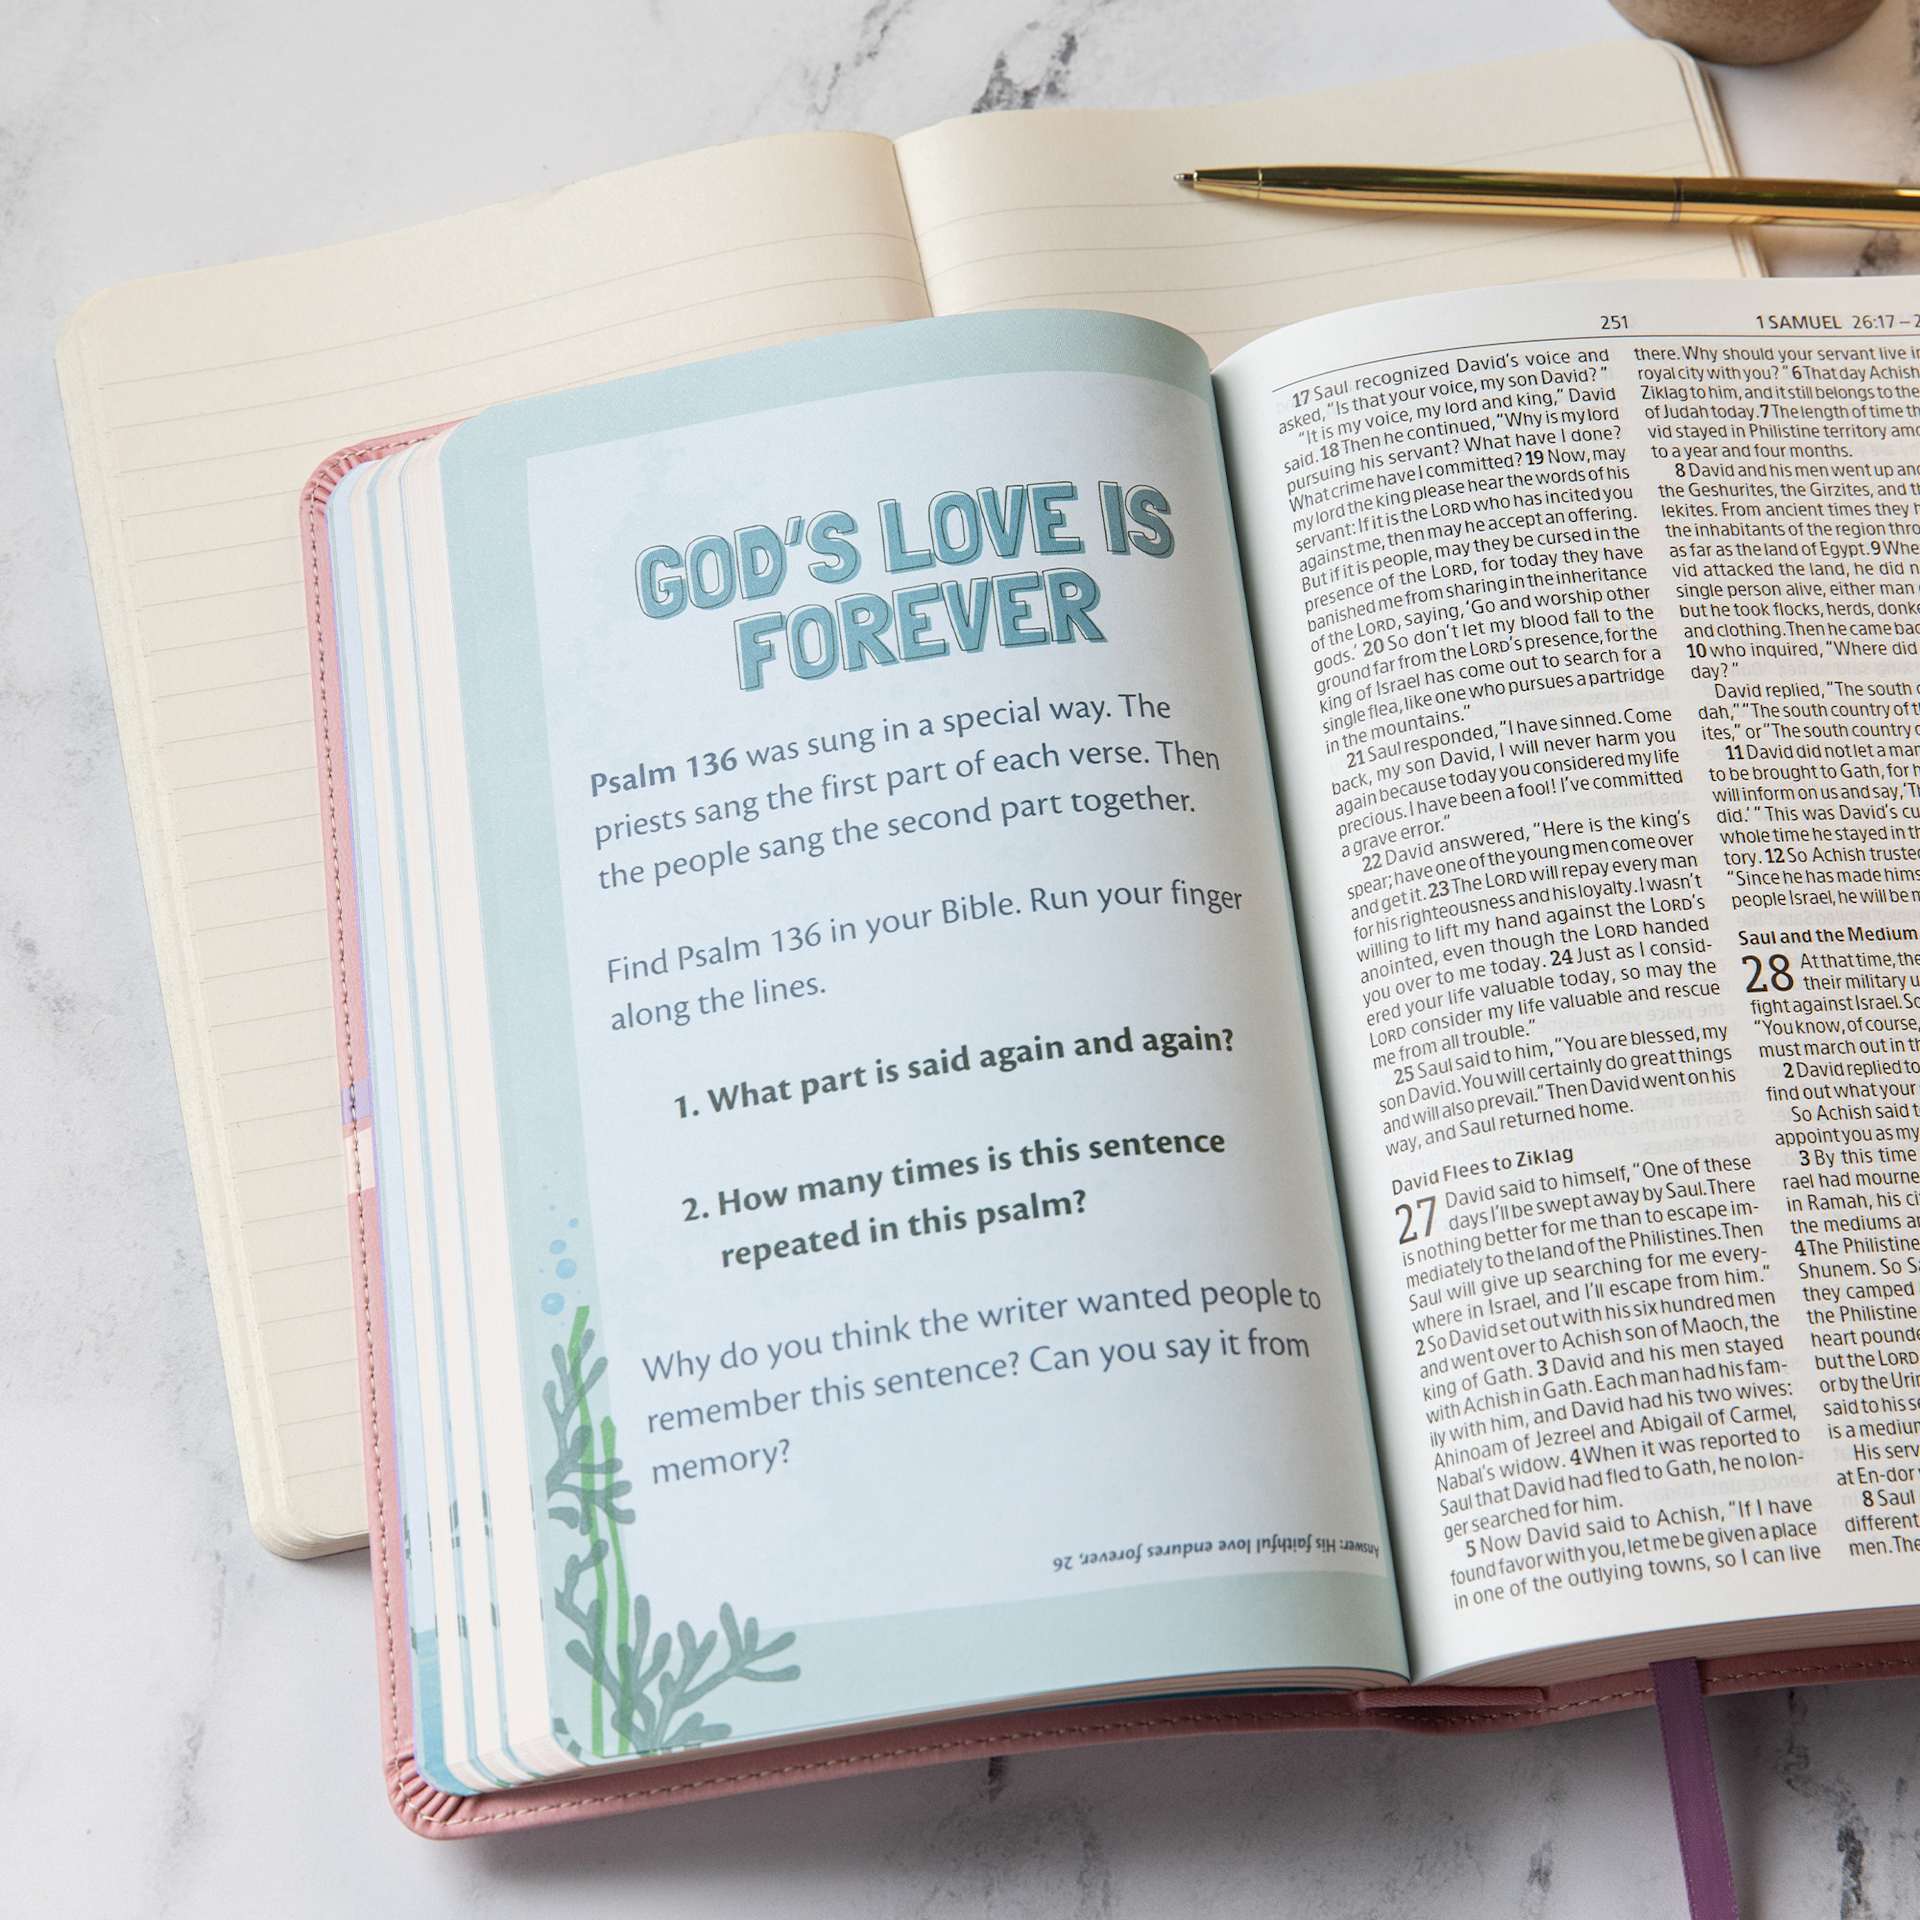 GOD'S LOVE IS
FOREVER
Psalm 136 was sung in a special way. The
priests sang the first part of each verse. Then
the people sang the second part together.
Find Psalm 136 in your Bible. Run your finger
along the lines.
1. What part is said again and again?
2. How many times is this sentence
repeated in this psalm?
Why do you think the writer wanted people to
remember this sentence? Can you say it from
memory?
Answer: His faithful love endures forever, 26
251
1 SAMUEL 26:17–2
17 Saul recognized David's voice and
asked, "Is that your voice, my son David?"
"It is my voice, my lord and king," David
said. 18 Then he continued, "Why is my lord
pursuing his servant? What have I done?
What crime have I committed? 19 Now, may
my lord the king please hear the words of his
servant: If it is the LORD who has incited you
against me, then may he accept an offering.
But if it is people, may they be cursed in the
presence of the LORD, for today they have
banished me from sharing in the inheritance
of the LORD, saying, 'Go and worship other
gods.' 20 So don't let my blood fall to the
ground far from the LORD's presence, for the
king of Israel has come out to search for a
single flea, like one who pursues a partridge
in the mountains."
21 Saul responded, "I have sinned. Come
back, my son David, I will never harm you
again because today you considered my life
precious. I have been a fool! I've committed
a grave error."
22 David answered, "Here is the king's
spear; have one of the young men come over
and get it. 23 The LORD will repay every man
for his righteousness and his loyalty. I wasn't
willing to lift my hand against the LORD's
anointed, even though the LORD handed
you over to me today. 24 Just as I consid-
ered your life valuable today, so may the
LORD consider my life valuable and rescue
me from all trouble."
25 Saul said to him, "You are blessed, my
son David. You will certainly do great things
and will also prevail." Then David went on his
way, and Saul returned home.
David Flees to Ziklag
27 David said to himself, "One of these
days I'll be swept away by Saul. There
is nothing better for me than to escape im-
mediately to the land of the Philistines. Then
Saul will give up searching for me every-
where in Israel, and I'll escape from him."
2 So David set out with his six hundred men
and went over to Achish son of Maoch, the
king of Gath. 3 David and his men stayed
with Achish in Gath. Each man had his fam-
ily with him, and David had his two wives:
Ahinoam of Jezreel and Abigail of Carmel,
Nabal's widow. 4 When it was reported to
Saul that David had fled to Gath, he no lon-
ger searched for him.
5 Now David said to Achish, "If I have
found favor with you, let me be given a place
in one of the outlying towns, so I can live
there. Why should your servant live in
royal city with you?" 6 That day Achish
Ziklag to him, and it still belongs to the
of Judah today. 7 The length of time th
vid stayed in Philistine territory amo
to a year and four months.
8 David and his men went up and
the Geshurites, the Girzites, and th
lekites. From ancient times they h
the inhabitants of the region thro
as far as the land of Egypt. 9 Whe
vid attacked the land, he did n
single person alive, either man
but he took flocks, herds, donke
and clothing. Then he came bac
10 who inquired, "Where did
day?"
David replied, "The south c
dah," "The south country of t
ites," or "The south country
11 David did not let a man
to be brought to Gath, for h
will inform on us and say, 'Th
did.'" This was David's cu
whole time he stayed in th
tory. 12 So Achish truste
"Since he has made hims
people Israel, he will be m
Saul and the Medium
28 At that time, the
their military u
fight against Israel. So
"You know, of course,
must march out in th
2 David replied to
find out what your
So Achish said t
appoint you as my
3 By this time
rael had mourne
in Ramah, his ci
the mediums an
4 The Philistine
Shunem. So Sa
they camped
the Philistine
heart pounde
but the LORD
or by the Urim
said to his se
is a medium
His serv
at En-dor
8 Saul
different
men. The